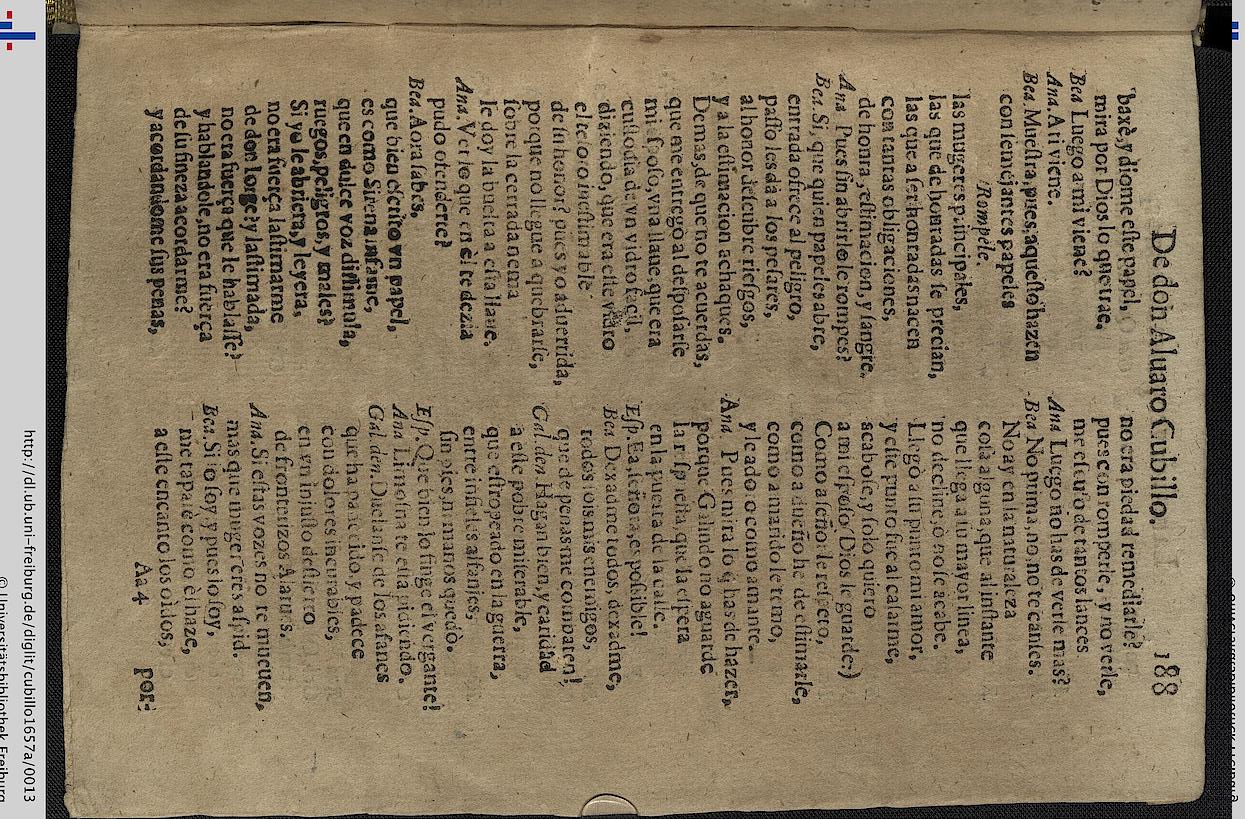 De don Aluaro Cubillo. 188
baxè, y dióme este papel,
mira por Dios lo que trae.
Bea Luego a mi viene?
Ana. A ti viene.
Bea. Muestra, pues, aquesto hazen
con semejantes papeles
Rompele.
las mugeres principales,
las que de honradas se precian,
las que a ser honradas nacen
con tantas obligaciones,
de honra, estimacion, y sangre.
Ana. Pues sin abrirle le rompes?
Bea. Si, que quien papeles abre,
entrada ofrece al peligro,
passo les dà a los pesares,
al honor descubre riesgos,
y a la estimacion achaques.
Demas, de que no te acuerdas,
que me entregò al desposarse
mi esposo, vna llaue, que era
custodia de vn vidro facil,
diziendo, que era este vidro
el teloro inestimable
de su honor? pues yo aduertida,
porque no llegue a quebrarse,
sobre la cerrada nema
le doy la buelta a esta llaue.
Ana. Ver lo que en el te dezia
pudo ofenderte?
Bea. Aora sabes,
que bien escrito vn papel,
es como Sirena infame,
que en dulce voz dissimula,
ruegos, peligros, y males?
Si yo le abriera, y leyera,
no era fuerça lastimarme
de don Iorge? y lastimada,
no era fuerça que le hablasse?
y hablandole, no era fuerça
de su fineza acordarme?
y acordandome sus penas,
no era piedad remediarle?
pues con romperle, y no verle,
me escuso de tantos lances
Ana Luego no has de verle mas?
Bea No prima, no, no te canses.
No ay en la naturaleza
cosa alguna, que al instante
que llega a su mayor linea,
no decline, ò no se acabe.
Llegò a su punto mi amor,
y este punto fue al casarme,
acabose, y solo quiero
a mi esposo (Dios le guarde:)
Como a señor le respeto,
como a dueño he de estimarle,
como a marido le temo,
y le adoro como amante.
Ana. Pues mira lo q has de hazer,
porque Galindo no aguarde
la respuesta que la espera
en la puerta de la calle.
Esp. Ea, señora, es possible!
Bea Dexadme todos, dexadme,
todos sois mis enemigos,
que de penas me combaten!
Gal. den. Hagan bien, y caridad
a este pobre miserable,
que estropeado en la guerra,
entre infieles alfanjes,
sin pies, ni manos quedò.
Esp. Que bien lo finge el vergante!
Ana Limosna te està pidiendo.
Gal. den. Duelanse de los afanes
que ha padecido, y padece
con dolores incurables,
en vn injusto destierro
de fronterizos Alarues.
Ana. Si estas vozes no te mueuen,
mas que muger eres aspid.
Bea. Si lo soy, y pues lo soy,
me taparè como èl haze,
a este encanto los oidos,
Aa 4 por-
http://dl.ub.uni-freiburg.de/diglit/cubillo1657a/0013
© Universitätsbibliothek Freiburg